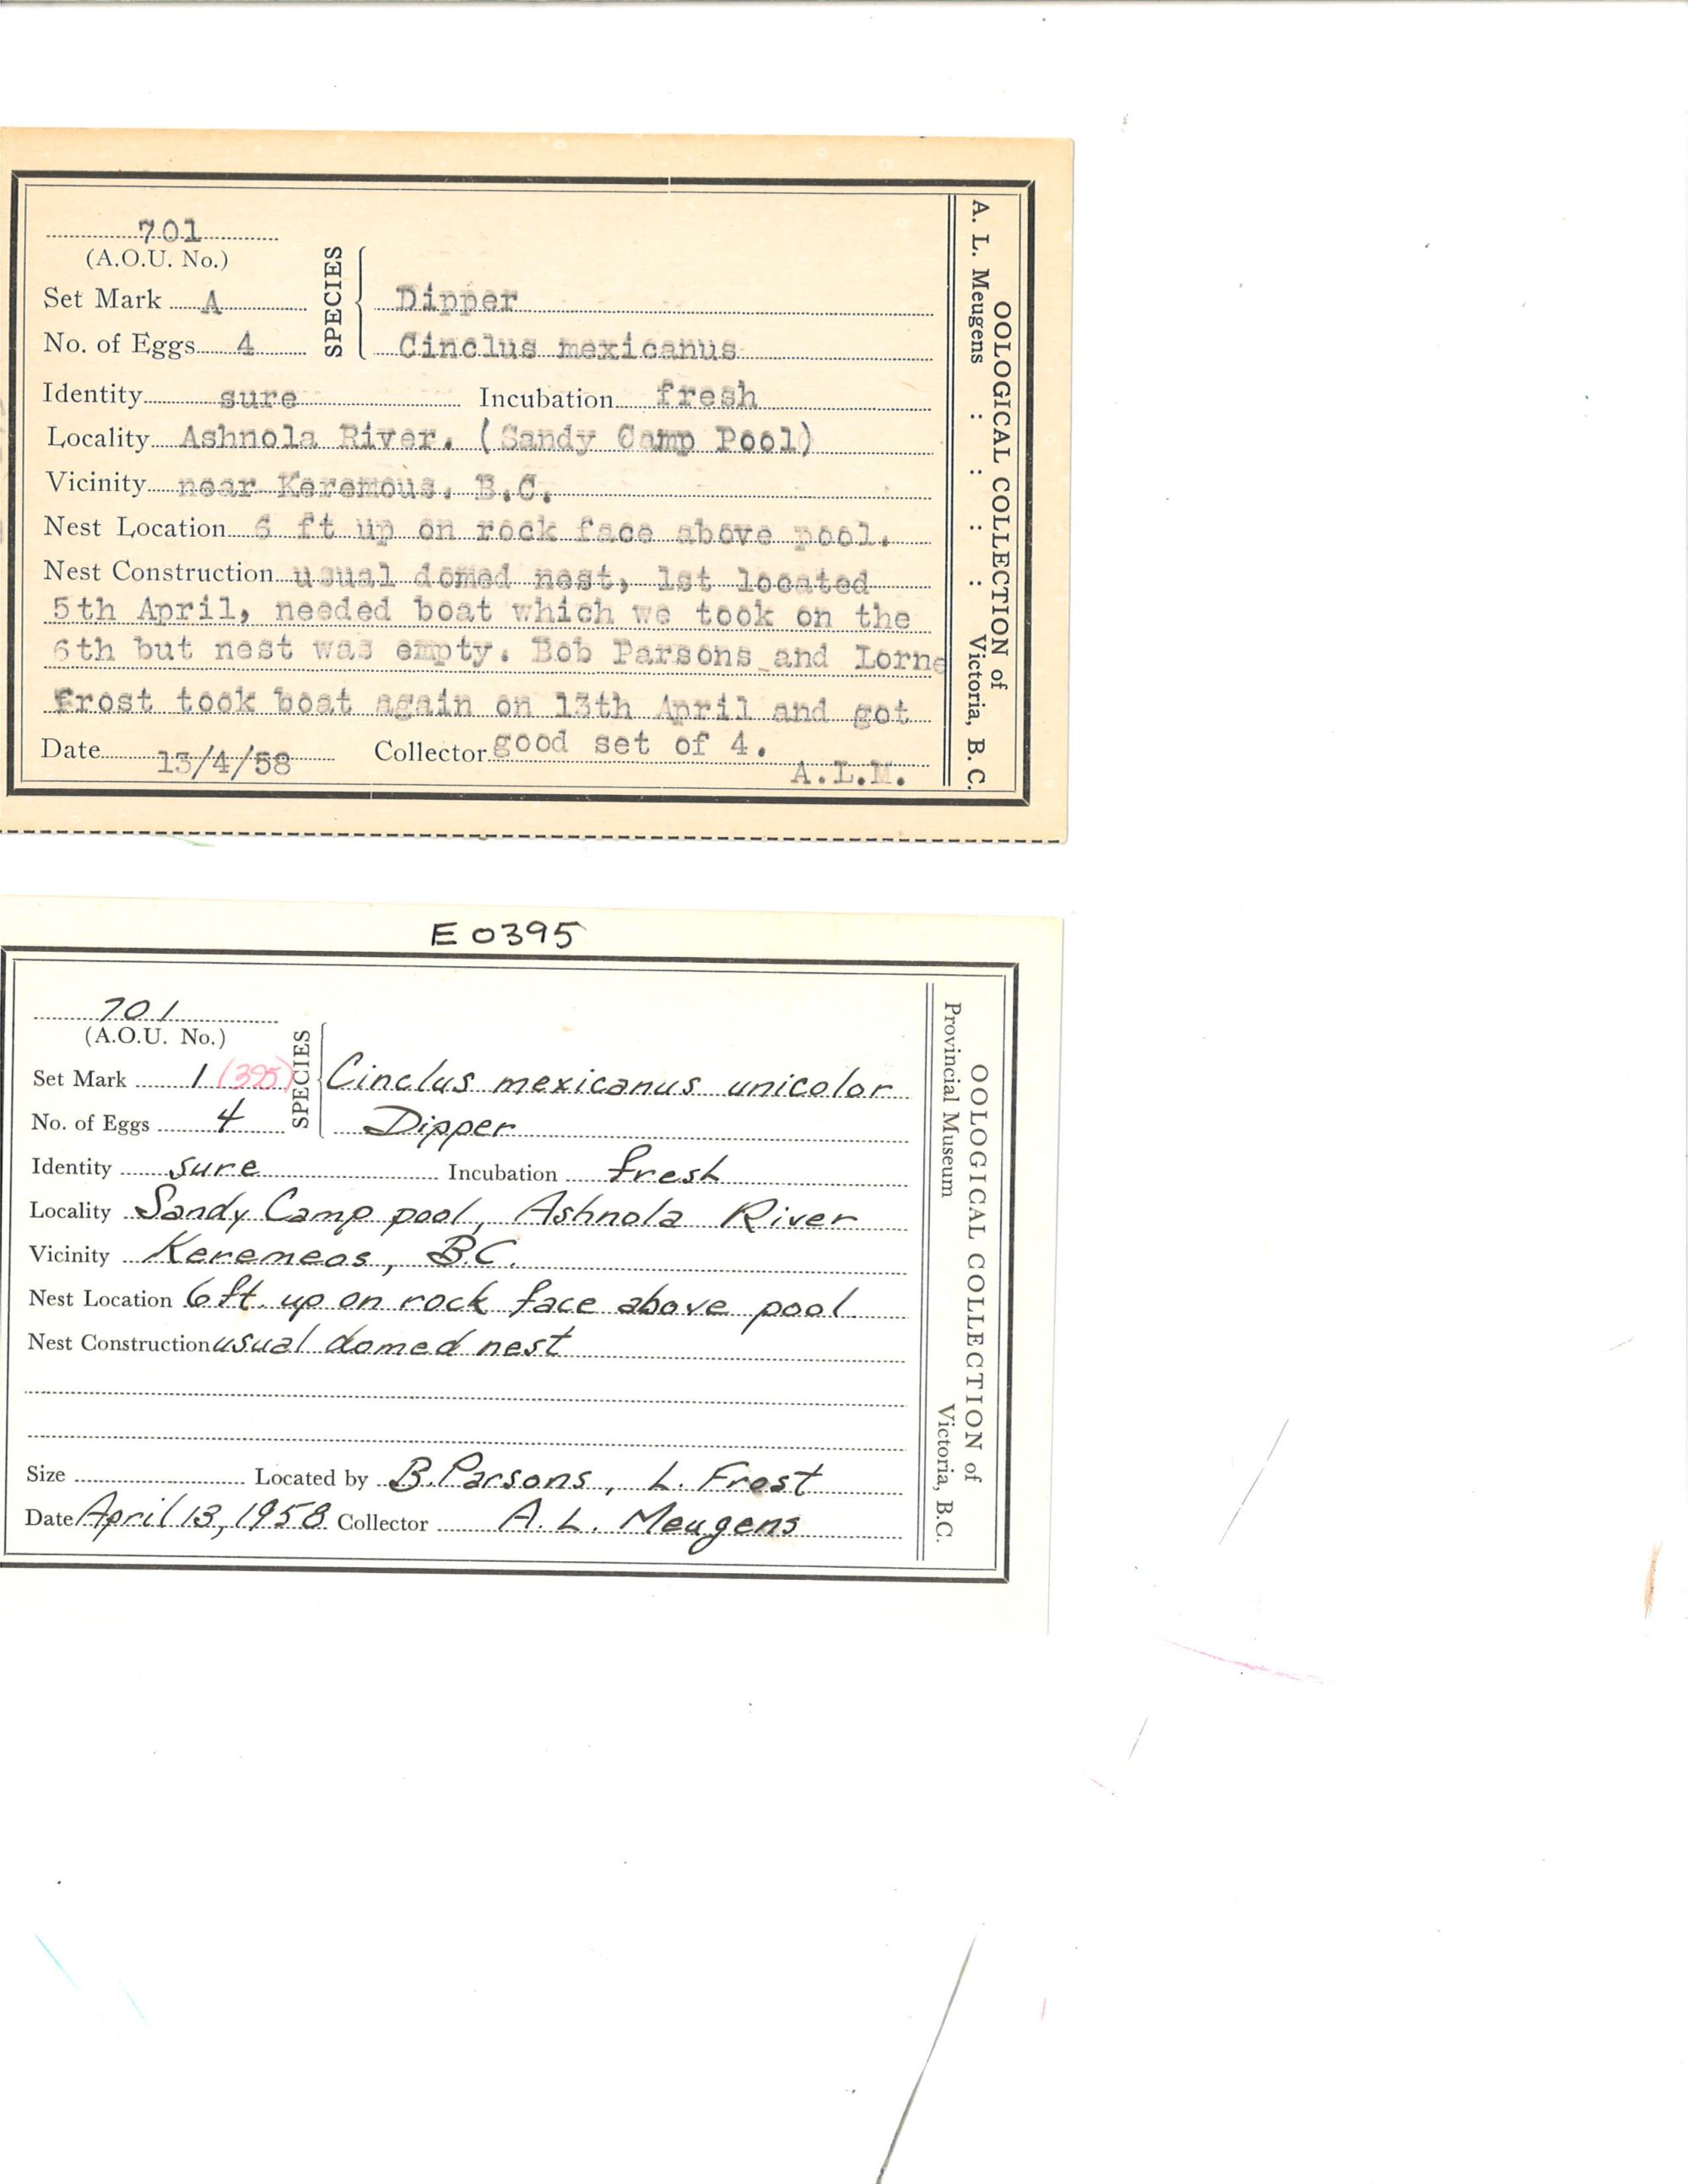 701
(A.O.U. No.)
Set Mark A
No. of Eggs 4
SPECIES
Dipper
Cinclus mexicanus
Identity sure Incubation fresh
Locality Ashnola River. (Sandy Camp Pool)
Vicinity near Keremous. B.C.
Nest Location 6 ft up on rock face above pool.
Nest Construction usual domed nest, 1st located
5th April, needed boat which we took on the
6th but nest was empty. Bob Parsons and Lorne
Frost took boat again on 13th April and got
good set of 4.
Date 13/4/58 Collector A.L.M.
OOLOGICAL COLLECTION of
A. L. Meugens : : : : Victoria, B. C.
E 0395
701
(A.O.U. No.)
Set Mark 1 (395)
No. of Eggs 4
SPECIES
Cinclus mexicanus unicolor
Dipper
Identity sure Incubation fresh
Locality Sandy Camp pool, Ashnola River
Vicinity Keremeos, B.C.
Nest Location 6ft. up on rock face above pool.
Nest Construction usual domed nest
Size Located by B. Parsons, L. Frost
Date April 13, 1958 Collector A. L. Meugens
OOLOGICAL COLLECTION of
Provincial Museum Victoria, B.C.